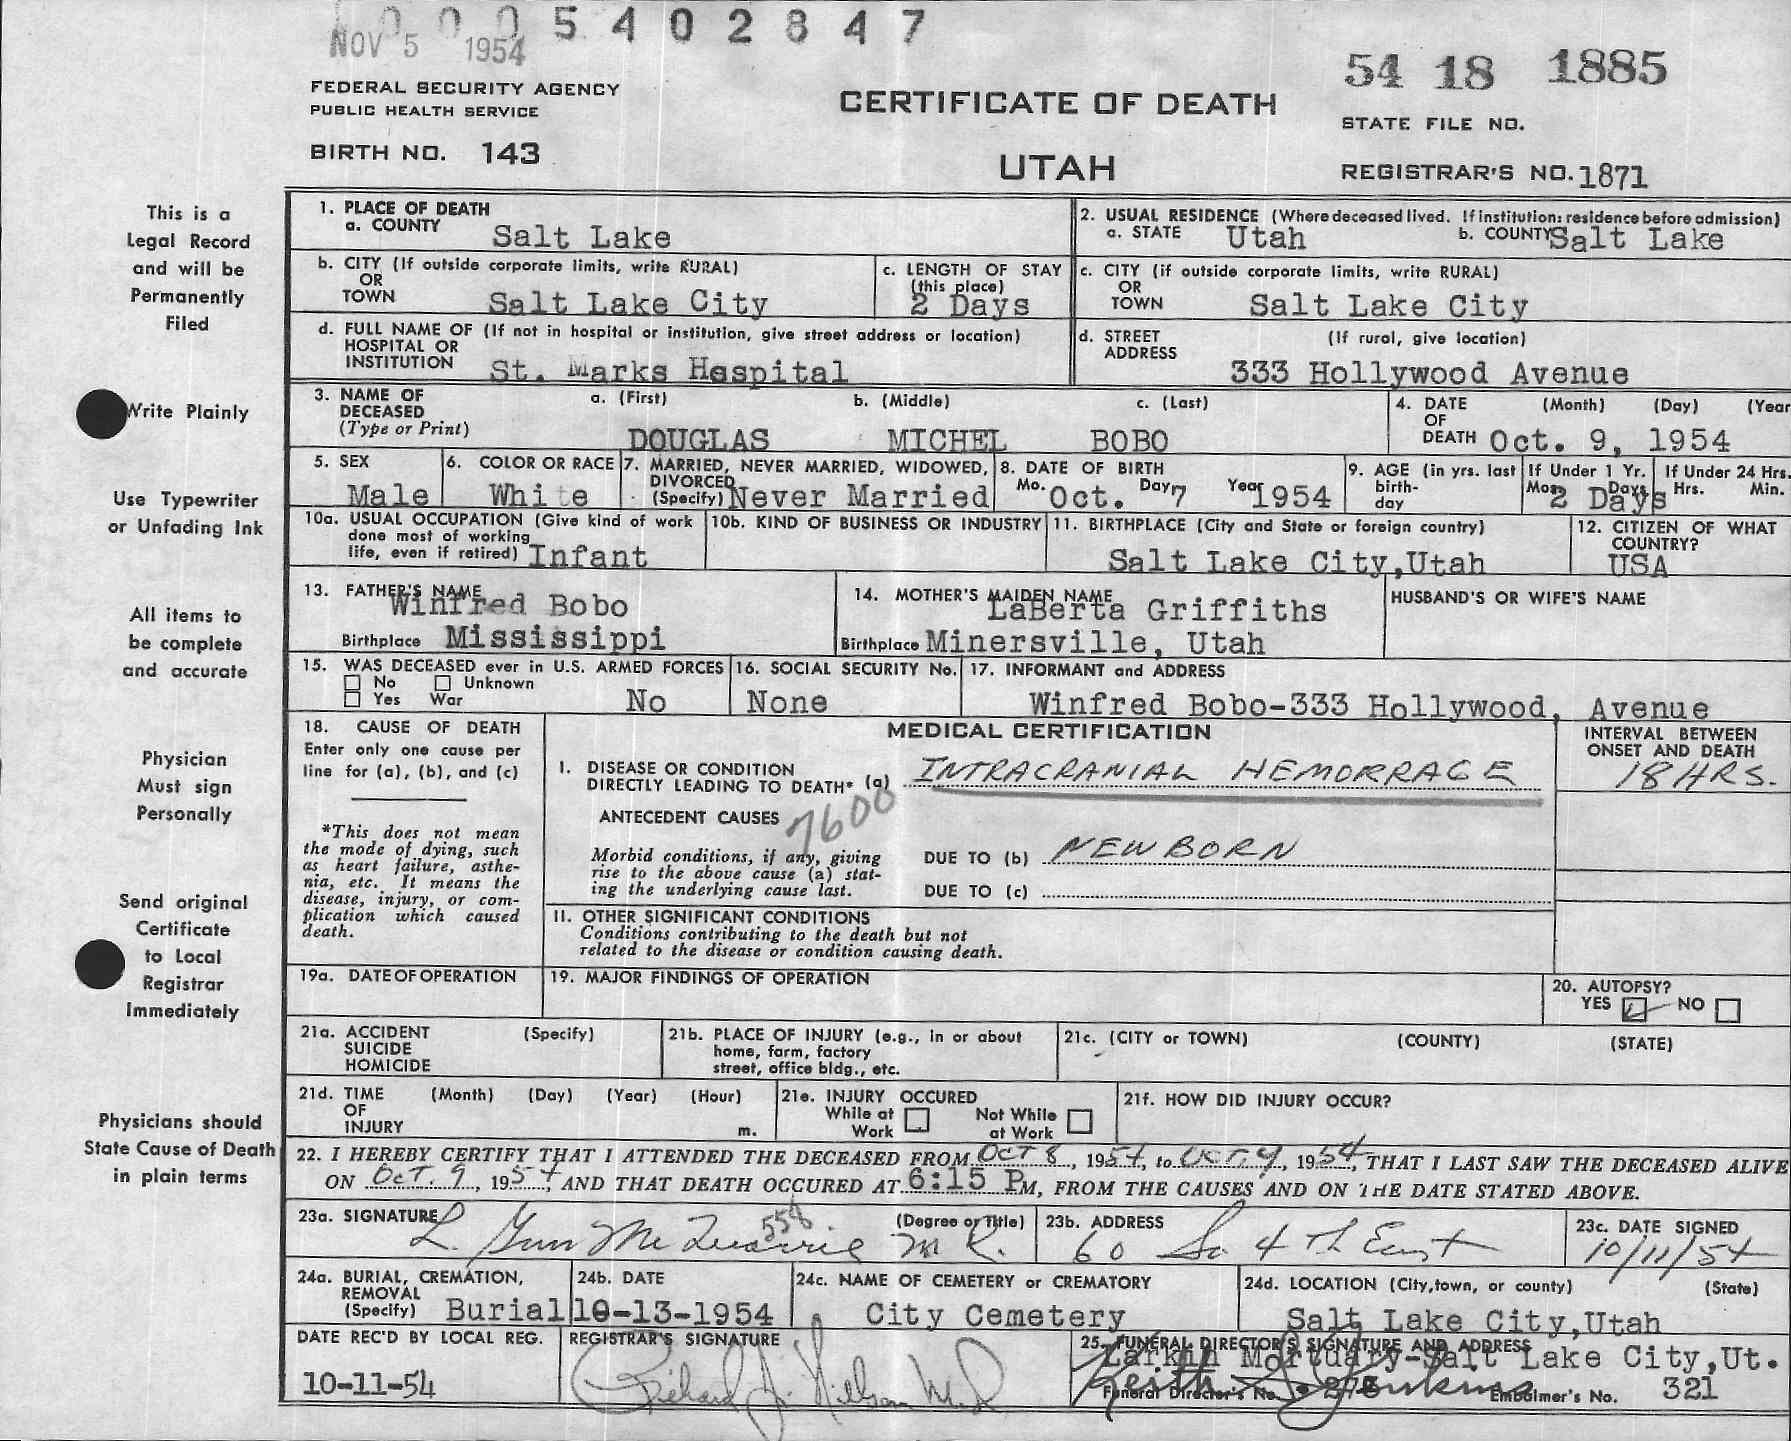 0005402847
NOV 5 1954
54 18 1885
FEDERAL SECURITY AGENCY
PUBLIC HEALTH SERVICE
CERTIFICATE OF DEATH
STATE FILE NO.
BIRTH NO. 143
UTAH
REGISTRAR'S NO. 1871
This is a
Legal Record
and will be
Permanently
Filed
Write Plainly
Use Typewriter
or Unfading Ink
All items to
be complete
and accurate
Physician
Must sign
Personally
Send original
Certificate
to Local
Registrar
Immediately
Physicians should
State Cause of Death
in plain terms
1. PLACE OF DEATH
a. COUNTY Salt Lake
2. USUAL RESIDENCE (Where deceased lived. If institution: residence before admission)
a. STATE Utah b. COUNTY Salt Lake
b. CITY (If outside corporate limits, write RURAL)
OR
TOWN Salt Lake City
c. LENGTH OF STAY
(this place)
2 Days
c. CITY (if outside corporate limits, write RURAL)
OR
TOWN Salt Lake City
d. FULL NAME OF (If not in hospital or institution, give street address or location)
HOSPITAL OR
INSTITUTION St. Marks Hospital
d. STREET (If rural, give location)
ADDRESS
333 Hollywood Avenue
3. NAME OF a. (First) b. (Middle) c. (Last)
DECEASED
(Type or Print) DOUGLAS MICHEL BOBO
4. DATE (Month) (Day) (Year
OF
DEATH Oct. 9, 1954
5. SEX
Male
6. COLOR OR RACE
White
7. MARRIED, NEVER MARRIED, WIDOWED,
DIVORCED
(Specify) Never Married
8. DATE OF BIRTH
Mo. Oct. Day 7 Year 1954
9. AGE (in yrs. last
birth-
day
If Under 1 Yr.
Mos. Days
2 Days
If Under 24 Hrs.
Hrs. Min.
10a. USUAL OCCUPATION (Give kind of work
done most of working
life, even if retired) Infant
10b. KIND OF BUSINESS OR INDUSTRY
11. BIRTHPLACE (City and State or foreign country)
Salt Lake City,Utah
12. CITIZEN OF WHAT
COUNTRY?
USA
13. FATHER'S NAME
Winfred Bobo
Birthplace Mississippi
14. MOTHER'S MAIDEN NAME
LaBerta Griffiths
Birthplace Minersville, Utah
HUSBAND'S OR WIFE'S NAME
15. WAS DECEASED ever in U.S. ARMED FORCES
No Unknown
Yes War No
16. SOCIAL SECURITY No.
None
17. INFORMANT and ADDRESS
Winfred Bobo-333 Hollywood, Avenue
18. CAUSE OF DEATH
Enter only one cause per
line for (a), (b), and (c)
*This does not mean
the mode of dying, such
as heart failure, asthe-
nia, etc. It means the
disease, injury, or com-
plication which caused
death.
MEDICAL CERTIFICATION
INTERVAL BETWEEN
ONSET AND DEATH
I. DISEASE OR CONDITION
DIRECTLY LEADING TO DEATH* (a) INTRACRANIAL HEMORRAGE 18 HRS.
7600
ANTECEDENT CAUSES
Morbid conditions, if any, giving
rise to the above cause (a) stat-
ing the underlying cause last.
DUE TO (b) NEWBORN
DUE TO (c)
II. OTHER SIGNIFICANT CONDITIONS
Conditions contributing to the death but not
related to the disease or condition causing death.
19a. DATE OF OPERATION
19. MAJOR FINDINGS OF OPERATION
20. AUTOPSY?
YES NO
21a. ACCIDENT (Specify)
SUICIDE
HOMICIDE
21b. PLACE OF INJURY (e.g., in or about
home, farm, factory
street, office bldg., etc.
21c. (CITY or TOWN) (COUNTY) (STATE)
21d. TIME (Month) (Day) (Year) (Hour)
OF
INJURY m.
21e. INJURY OCCURED
While at Work Not While at Work
21f. HOW DID INJURY OCCUR?
22. I HEREBY CERTIFY THAT I ATTENDED THE DECEASED FROM OCT 8, 1954, to OCT. 9, 1954, THAT I LAST SAW THE DECEASED ALIVE
ON OCT. 9, 1954, AND THAT DEATH OCCURED AT 6:15 P M, FROM THE CAUSES AND ON THE DATE STATED ABOVE.
23a. SIGNATURE (Degree or Title)
L. Gunn McQuarrie 558.
23b. ADDRESS
60 So 4 Th East
23c. DATE SIGNED
10/11/54
24a. BURIAL, CREMATION,
REMOVAL
(Specify) Burial
24b. DATE
10-13-1954
24c. NAME OF CEMETERY or CREMATORY
City Cemetery
24d. LOCATION (City, town, or county) (State)
Salt Lake City,Utah
DATE REC'D BY LOCAL REG.
10-11-54
REGISTRAR'S SIGNATURE
Richard J. Nielson M.D.
25. FUNERAL DIRECTOR'S SIGNATURE AND ADDRESS
Larkin Mortuary-Salt Lake City,Ut.
Keith
Funeral Director's No. 278 Embalmer's No. 321